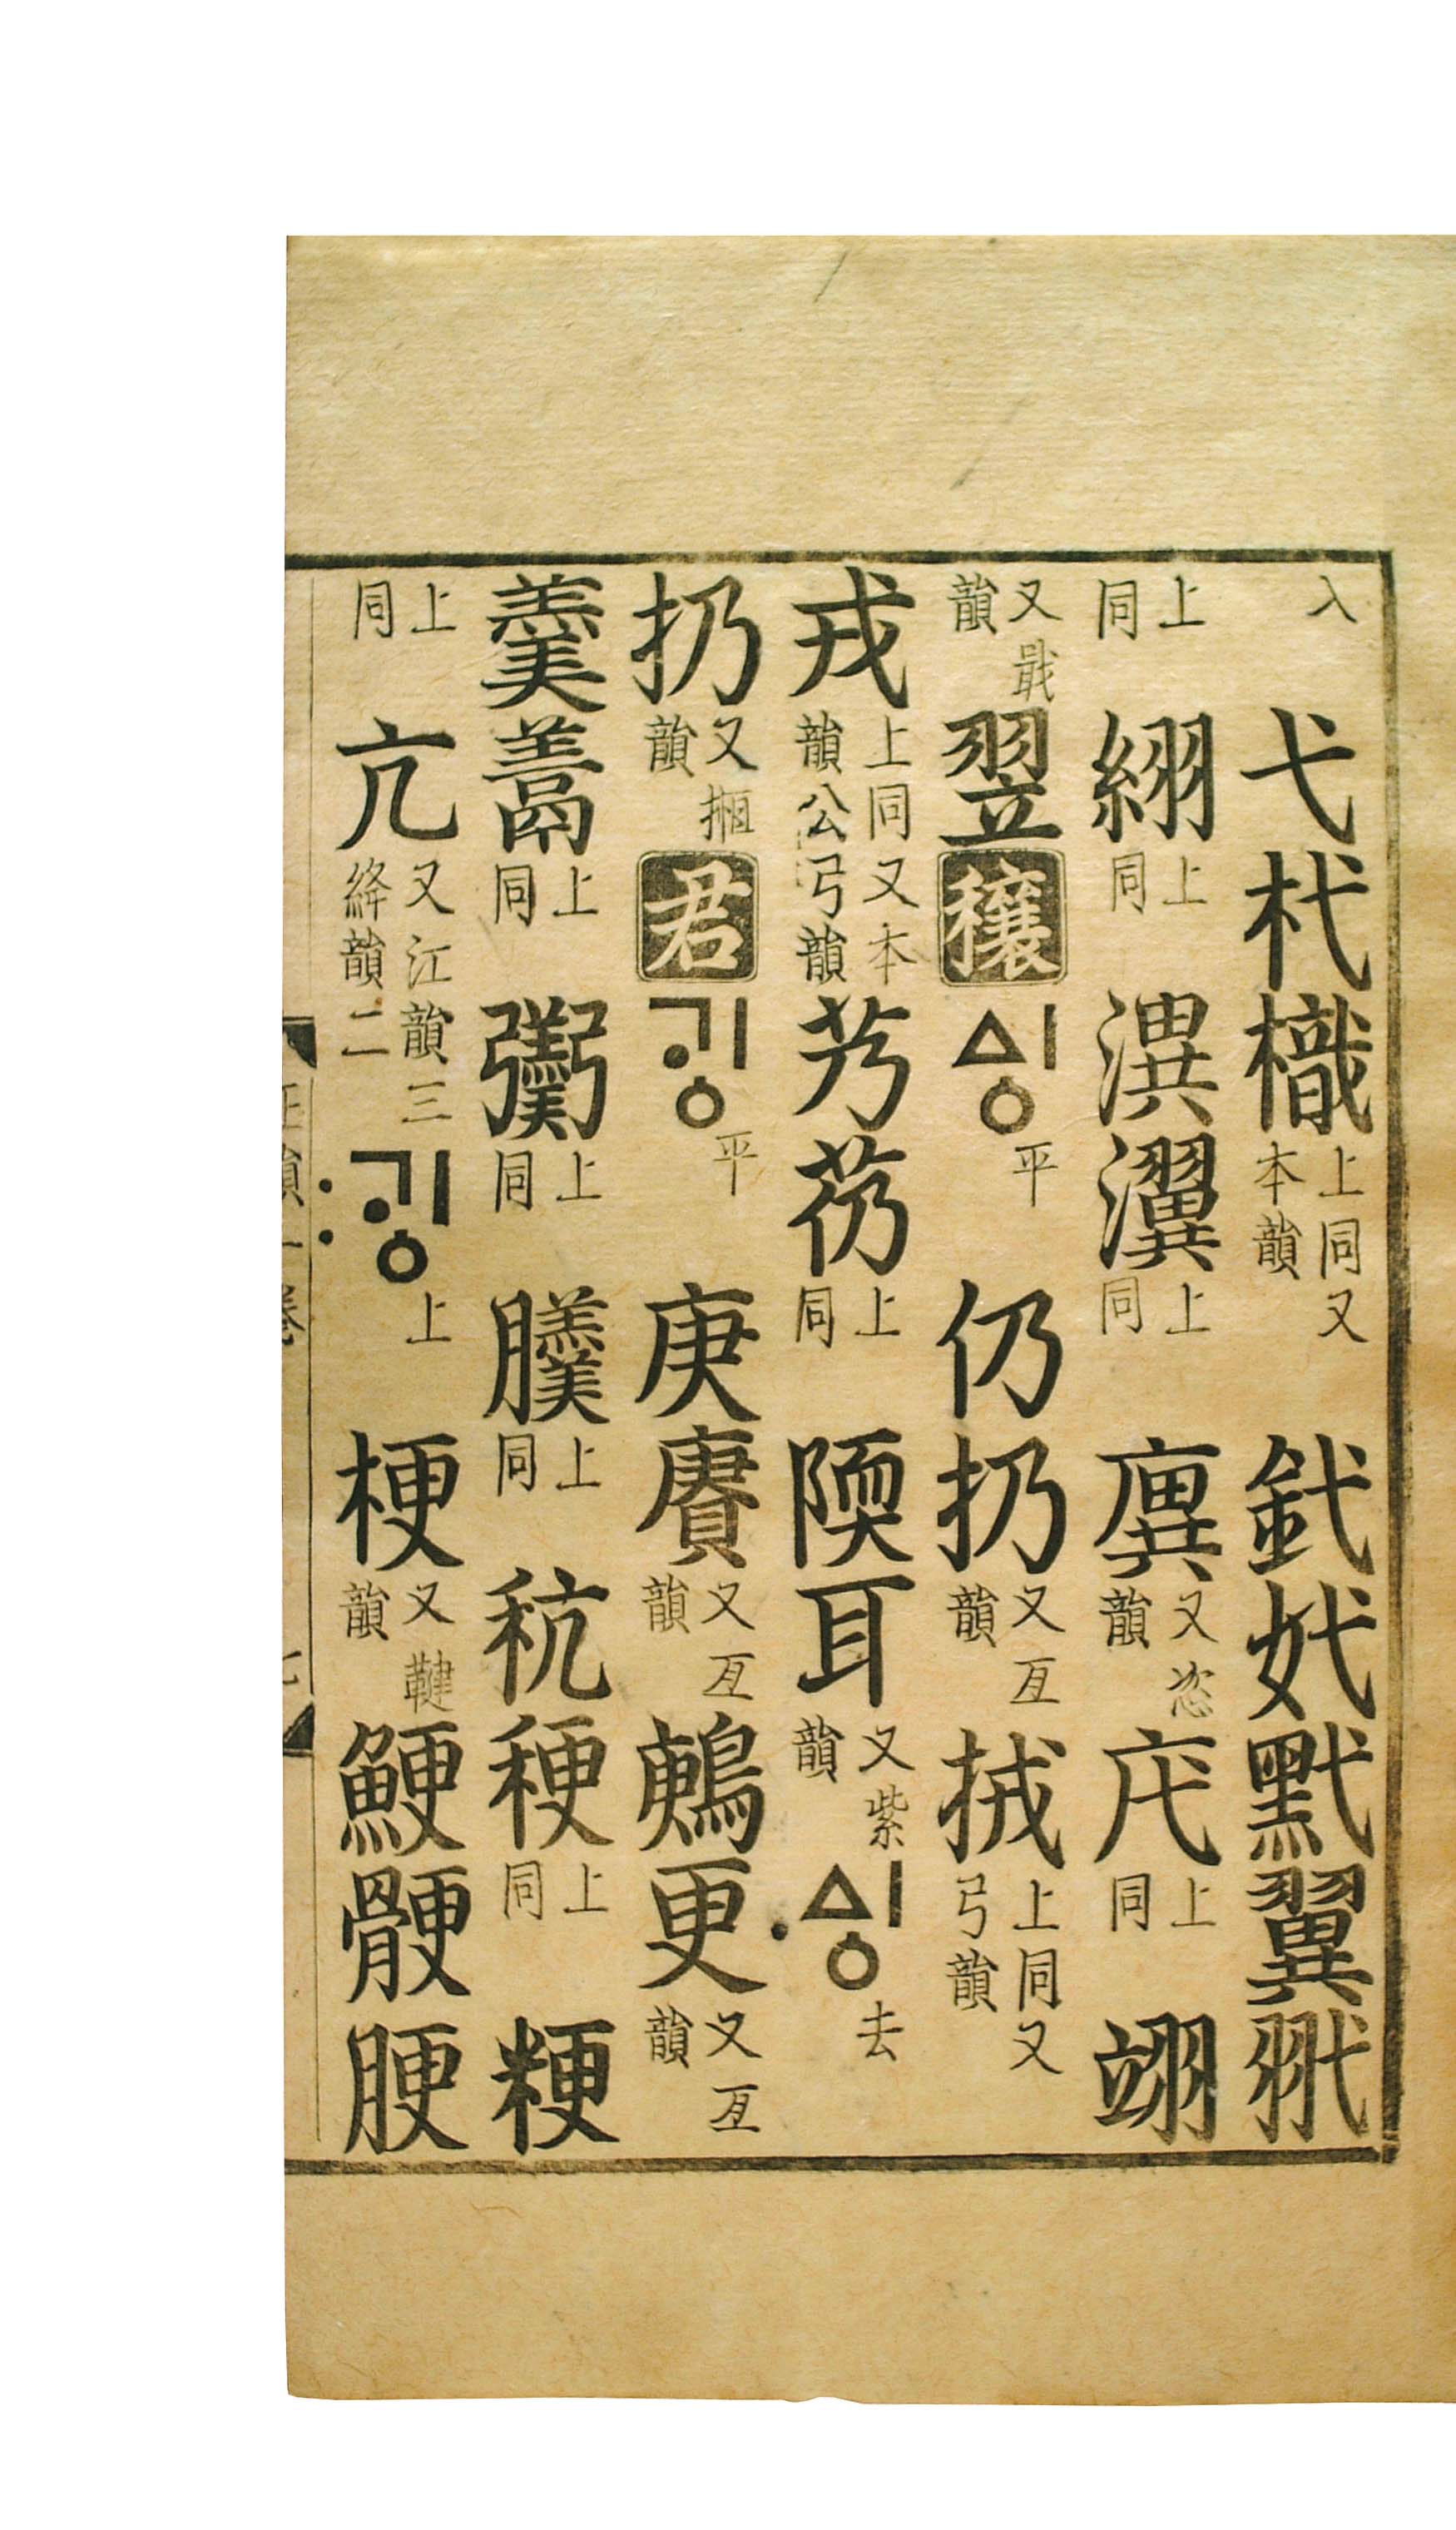 入 弋杙樴上同又本韻釴㚤黓翼
上同 䋚上同潩瀷上同廙又恣韻㡴上同翊
又戢韻翌 穰 ᅀᅵᆼ平 仍扔又亙韻㧡上同又弓韻
戎上同又本韻公弓韻艿芿上同陾耳又紫韻 ᅀᅵᆼ〮去
扔又韻 君 ᄀᆡᆼ平 庚賡又亙韻鶊更又亙韻
羹上同上同上同秔稉上同粳
上同 亢又江韻三絳韻二 ᄀᆡᆼ〯上 梗又韻鯁骾